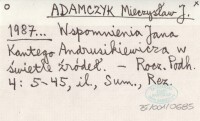 ADAMCZYK Mieczysław J.
1987... Wspomnienia Jana
Kantego Andrusikiewicza w
świetle źródeł. - Rocz. Podh.
4: 5-45, il., Sum., Rez.